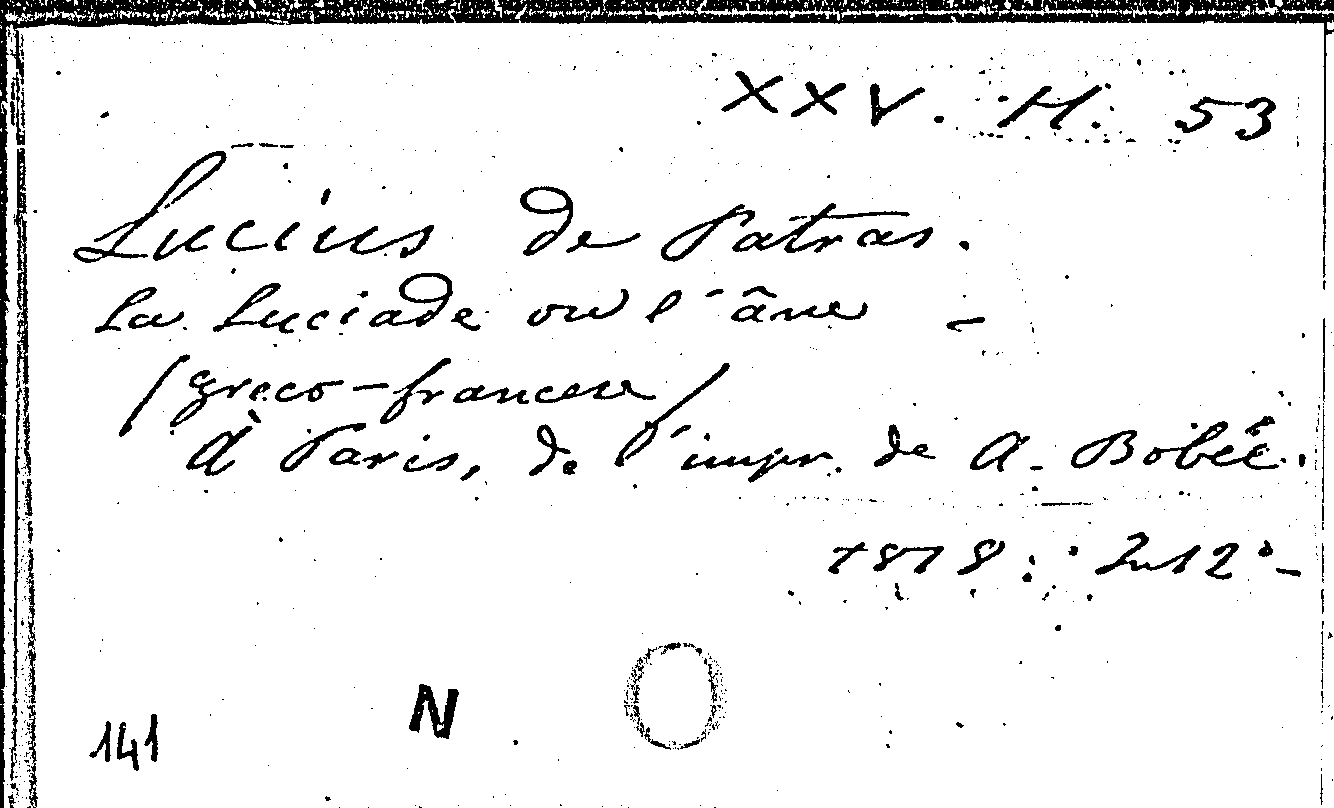 XXV. H. 53
Lucius de Patras.
La Luciade ou l'âne -
(greco-francese)
À Paris, de l'impr. de A. Bobée.
1818. In 12° -
N
141